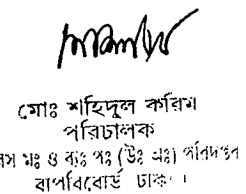 মোঃ শহিদুল করিম
পরিচালক
মঃ ও ব্যঃ পঃ (উঃ অঃ) পরিদপ্তর
বাপবিবোর্ড ঢাকা।